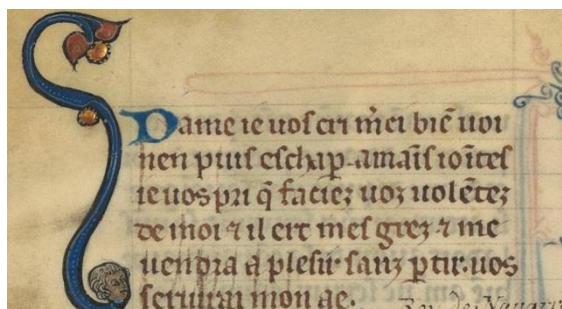 Dame ie uos cri m̃ci biẽ uoi
nen puis eschap. amaĩs ioĩtes
ie uos pri q̃ faciez uoz uolẽtez
de moi ⁊ il ert mes grez ⁊ me
uendra a plesir sanz ꝑtir. uos
seruirai mon ae.
Rey de Nauarre